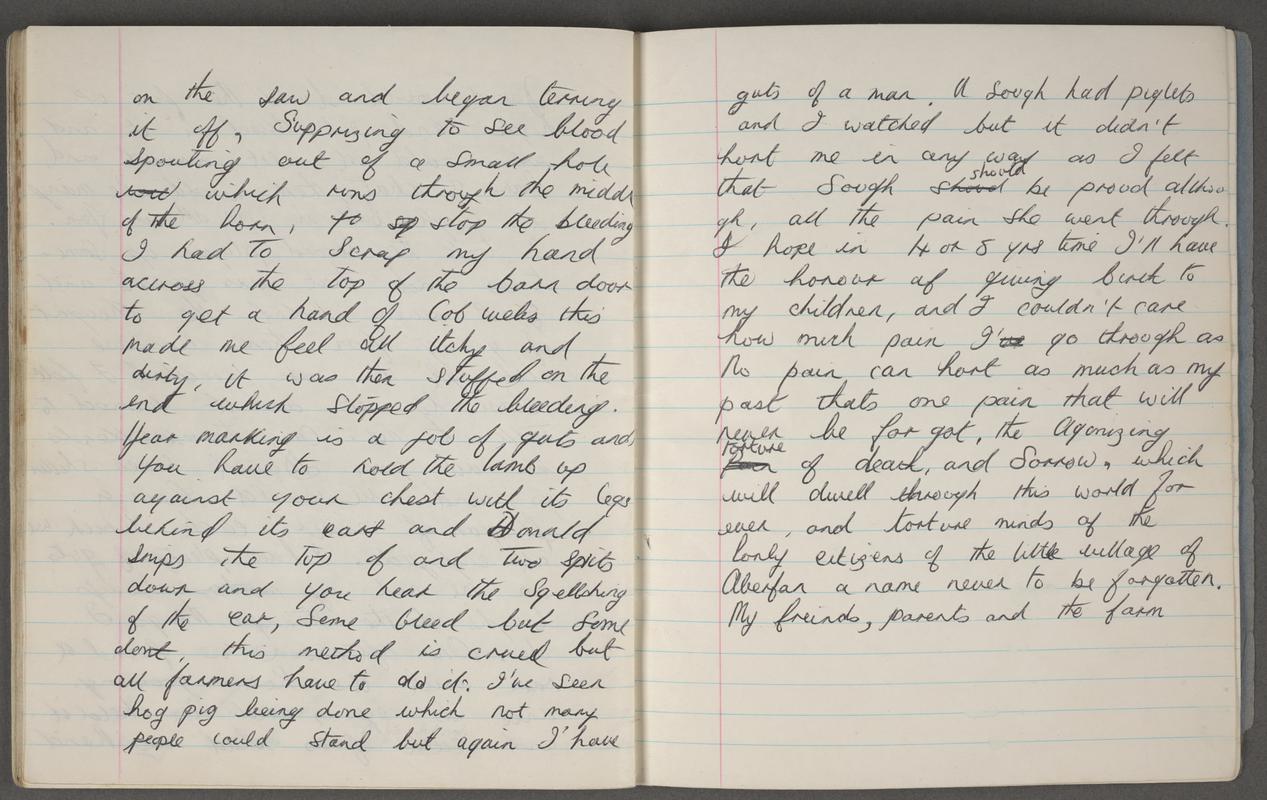 on the saw and began terring
it off, Supprizing to see blood
spouting out of a small hole
which runs through the middl
of the horn, to stop the bleeding
I had to scrap my hand
accross the top of the barn door
to get a hand of Cob webs this
made me feel all itchy and
dirty, it was then stuffed on the
end which stopped the bleeding.
Year marking is a job of, guts and
you have to hold the lamb up
against your chest with its legs
behind its ears and Donald
snips the top of and two splits
down and you hear the Sqellshing
of the ear, Some bleed but Some
dont, this method is cruel but
all farmers have to do it. I've seen
hog pig being done which not many
people could stand but again I' have
guts of a man. A Sough had piglets
and I watched but it didn't
hort me in any way as I felt
that Sough should be proud althou
gh, all the pain she went through.
I hope in 4 or 5 yrs time I'll have
the honour of giving birth to
my children, and I couldn't care
how much pain I' go through as
No pain can hort as much as my
past thats one pain that will
never be for got, the Agonizing
torture of death, and Sorrow, which
will dwell through this world for
ever, and torture minds of the
lonly citizens of the little village of
Aberfan a name never to be forgotten.
My freinds, parents and the farm